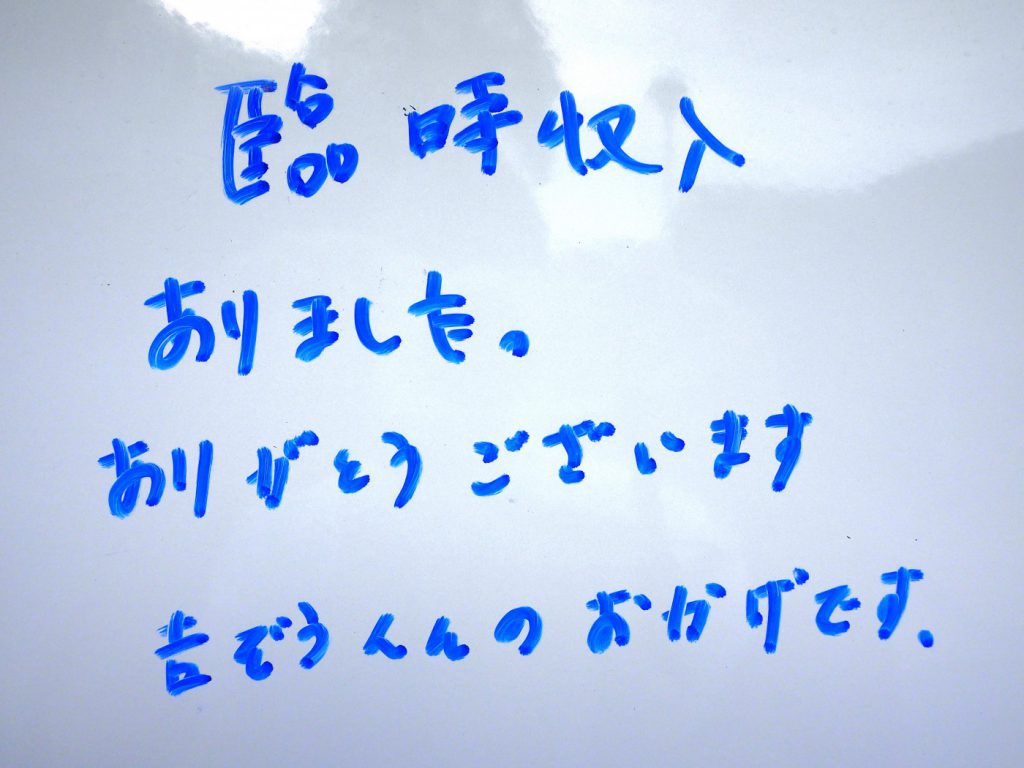 臨時収入
ありました。
ありがとうございます
吉ぞうくんのおかげです.